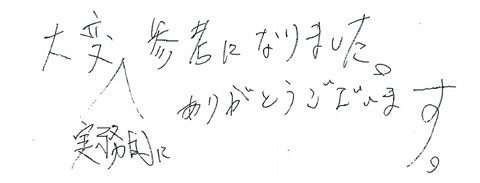 大変、参考になりました。
ありがとうございます。
実務的に